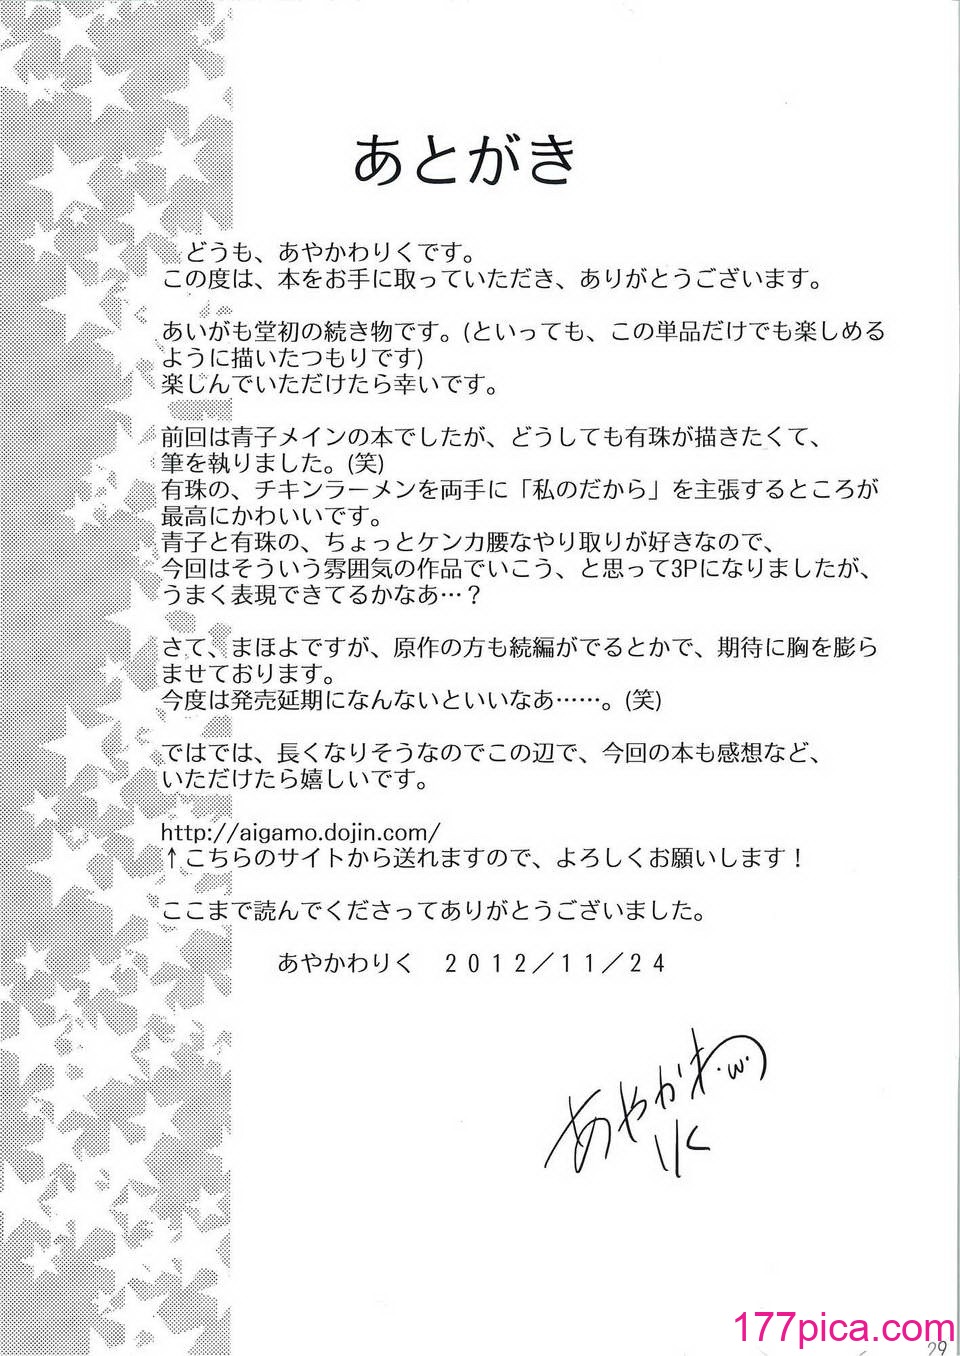 あとがき
どうも、あやかわりくです。
この度は、本をお手に取っていただき、ありがとうございます。
あいがも堂初の続き物です。(といっても、この単品だけでも楽しめる
ように描いたつもりです)
楽しんでいただけたら幸いです。
前回は青子メインの本でしたが、どうしても有珠が描きたくて、
筆を執りました。(笑)
有珠の、チキンラーメンを両手に「私のだから」を主張するところが
最高にかわいいです。
青子と有珠の、ちょっとケンカ腰なやり取りが好きなので、
今回はそういう雰囲気の作品でいこう、と思って3Pになりましたが、
うまく表現できてるかなあ…？
さて、まほよですが、原作の方も続編がでるとかで、期待に胸を膨ら
ませております。
今度は発売延期になんないといいなあ……。(笑)
ではでは、長くなりそうなのでこの辺で、今回の本も感想など、
いただけたら嬉しいです。
http://aigamo.dojin.com/
↑こちらのサイトから送れますので、よろしくお願いします！
ここまで読んでくださってありがとうございました。
あやかわりく　２０１２／１１／２４
あやかわ
りく
177pica.com
29